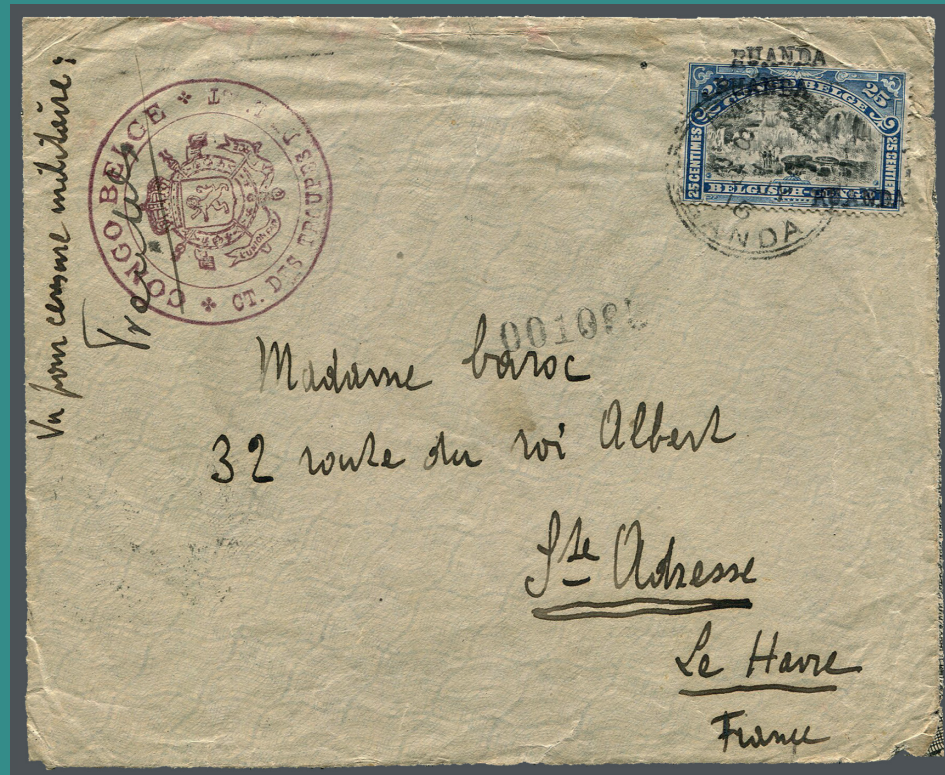 Vu pour censure militaire :
CONGO BELGE
CT. DES TROUPES
RUANDA
RUANDA
25
BELGE
25
25 CENTIMES
25 CENTIEM
BELGISCH
RUANDA
16
ANDA
Madame baroc
32 route du roi Albert
Ste Adresse
Le Havre
France